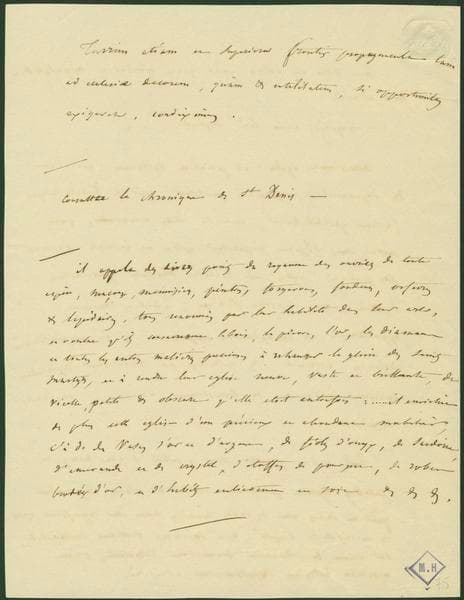 Turrim etiam et superiora frontis propugnacula tam
ad ecclesiæ decorem, quam & utilitatem, si opportunitas
exigeret, condiximus.
Consulter la chronique de St Denis —
il appela des divers points du royaume des ouvriers de toute
espèce, maçons, menuisiers, peintres, forgerons, fondeurs, orfèvres
& lapidaires, tous renommés par leur habileté dans leur arts,
le bois, la pierre, l'or, les diamans
et toutes les autres matières précieuses à rehausser la gloire des saints
martyrs, et à rendre leur eglise neuve, vaste et brillante, de
vieille, petite & obscure qu'elle etoit autrefois : .... il enrichit
de plus cette eglise d'un précieux et abondant mobilier,
c'à d. des vases d'or et d'argent, de fioles d'onyx, de Sardoine,
d'emeraude et de crystal, d'etoffes de pourpre, de robes
brodées d'or, et d'habits entièrement en soie &c &c &c.
M.H
75